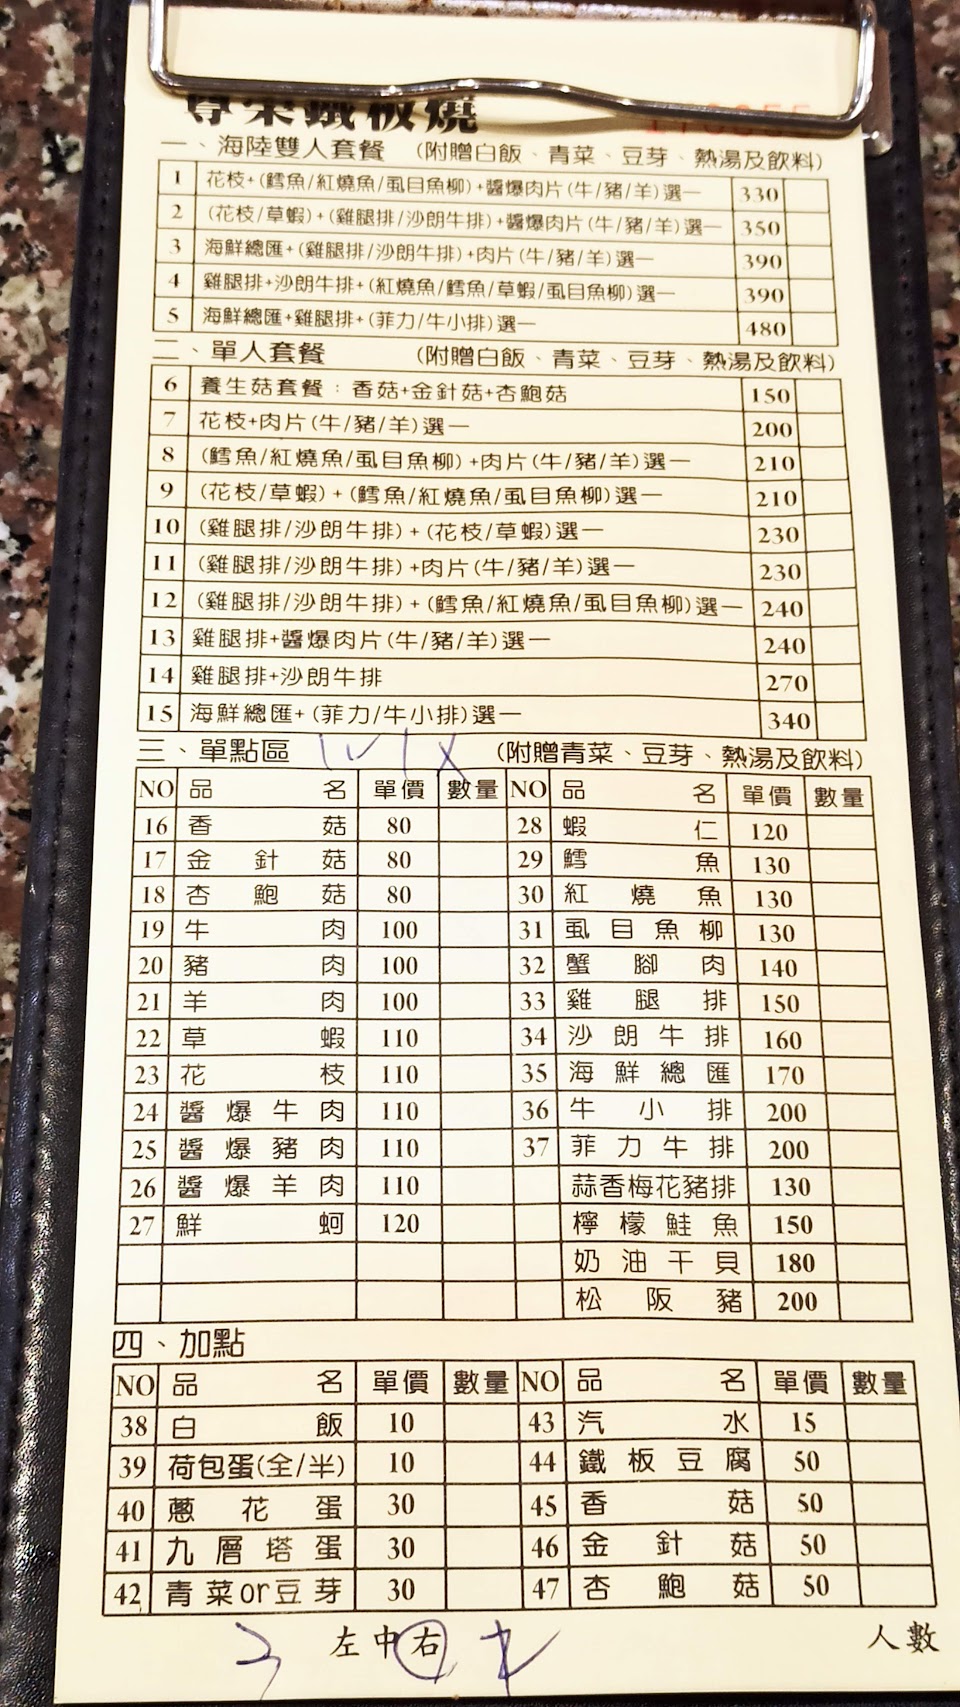 鐵板燒
一、海陸雙人套餐 (附贈白飯、青菜、豆芽、熱湯及飲料)
1 花枝+(鱈魚/紅燒魚/虱目魚柳)+醬爆肉片(牛/豬/羊)選一 330
2 (花枝/草蝦)+(雞腿排/沙朗牛排)+醬爆肉片(牛/豬/羊)選一 350
3 海鮮總匯+(雞腿排/沙朗牛排)+肉片(牛/豬/羊)選一 390
4 雞腿排+沙朗牛排+(紅燒魚/鱈魚/草蝦/虱目魚柳)選一 390
5 海鮮總匯+雞腿排+(菲力/牛小排)選一 480
二、單人套餐 (附贈白飯、青菜、豆芽、熱湯及飲料)
6 養生菇套餐:香菇+金針菇+杏鮑菇 150
7 花枝+肉片(牛/豬/羊)選一 200
8 (鱈魚/紅燒魚/虱目魚柳)+肉片(牛/豬/羊)選一 210
9 (花枝/草蝦)+(鱈魚/紅燒魚/虱目魚柳)選一 210
10 (雞腿排/沙朗牛排)+(花枝/草蝦)選一 230
11 (雞腿排/沙朗牛排)+肉片(牛/豬/羊)選一 230
12 (雞腿排/沙朗牛排)+(鱈魚/紅燒魚/虱目魚柳)選一 240
13 雞腿排+醬爆肉片(牛/豬/羊)選一 240
14 雞腿排+沙朗牛排 270
15 海鮮總匯+(菲力/牛小排)選一 340
三、單點區 (附贈青菜、豆芽、熱湯及飲料)
NO 品名 單價 數量 NO 品名 單價 數量
16 香菇 80 28 蝦仁 120
17 金針菇 80 29 鱈魚 130
18 杏鮑菇 80 30 紅燒魚 130
19 牛肉 100 31 虱目魚柳 130
20 豬肉 100 32 蟹腳肉 140
21 羊肉 100 33 雞腿排 150
22 草蝦 110 34 沙朗牛排 160
23 花枝 110 35 海鮮總匯 170
24 醬爆牛肉 110 36 牛小排 200
25 醬爆豬肉 110 37 菲力牛排 200
26 醬爆羊肉 110 蒜香梅花豬排 130
27 鮮蚵 120 檸檬鮭魚 150
奶油干貝 180
松阪豬 200
四、加點
NO 品名 單價 數量 NO 品名 單價 數量
38 白飯 10 43 汽水 15
39 荷包蛋(全/半) 10 44 鐵板豆腐 50
40 蔥花蛋 30 45 香菇 50
41 九層塔蛋 30 46 金針菇 50
42 青菜or豆芽 30 47 杏鮑菇 50
左中右 人數